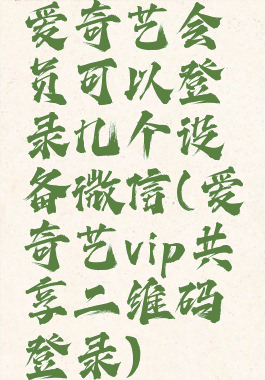 爱奇艺会
员可以登
录几个设
备微信(爱
奇艺vip共
享二维码
登录)